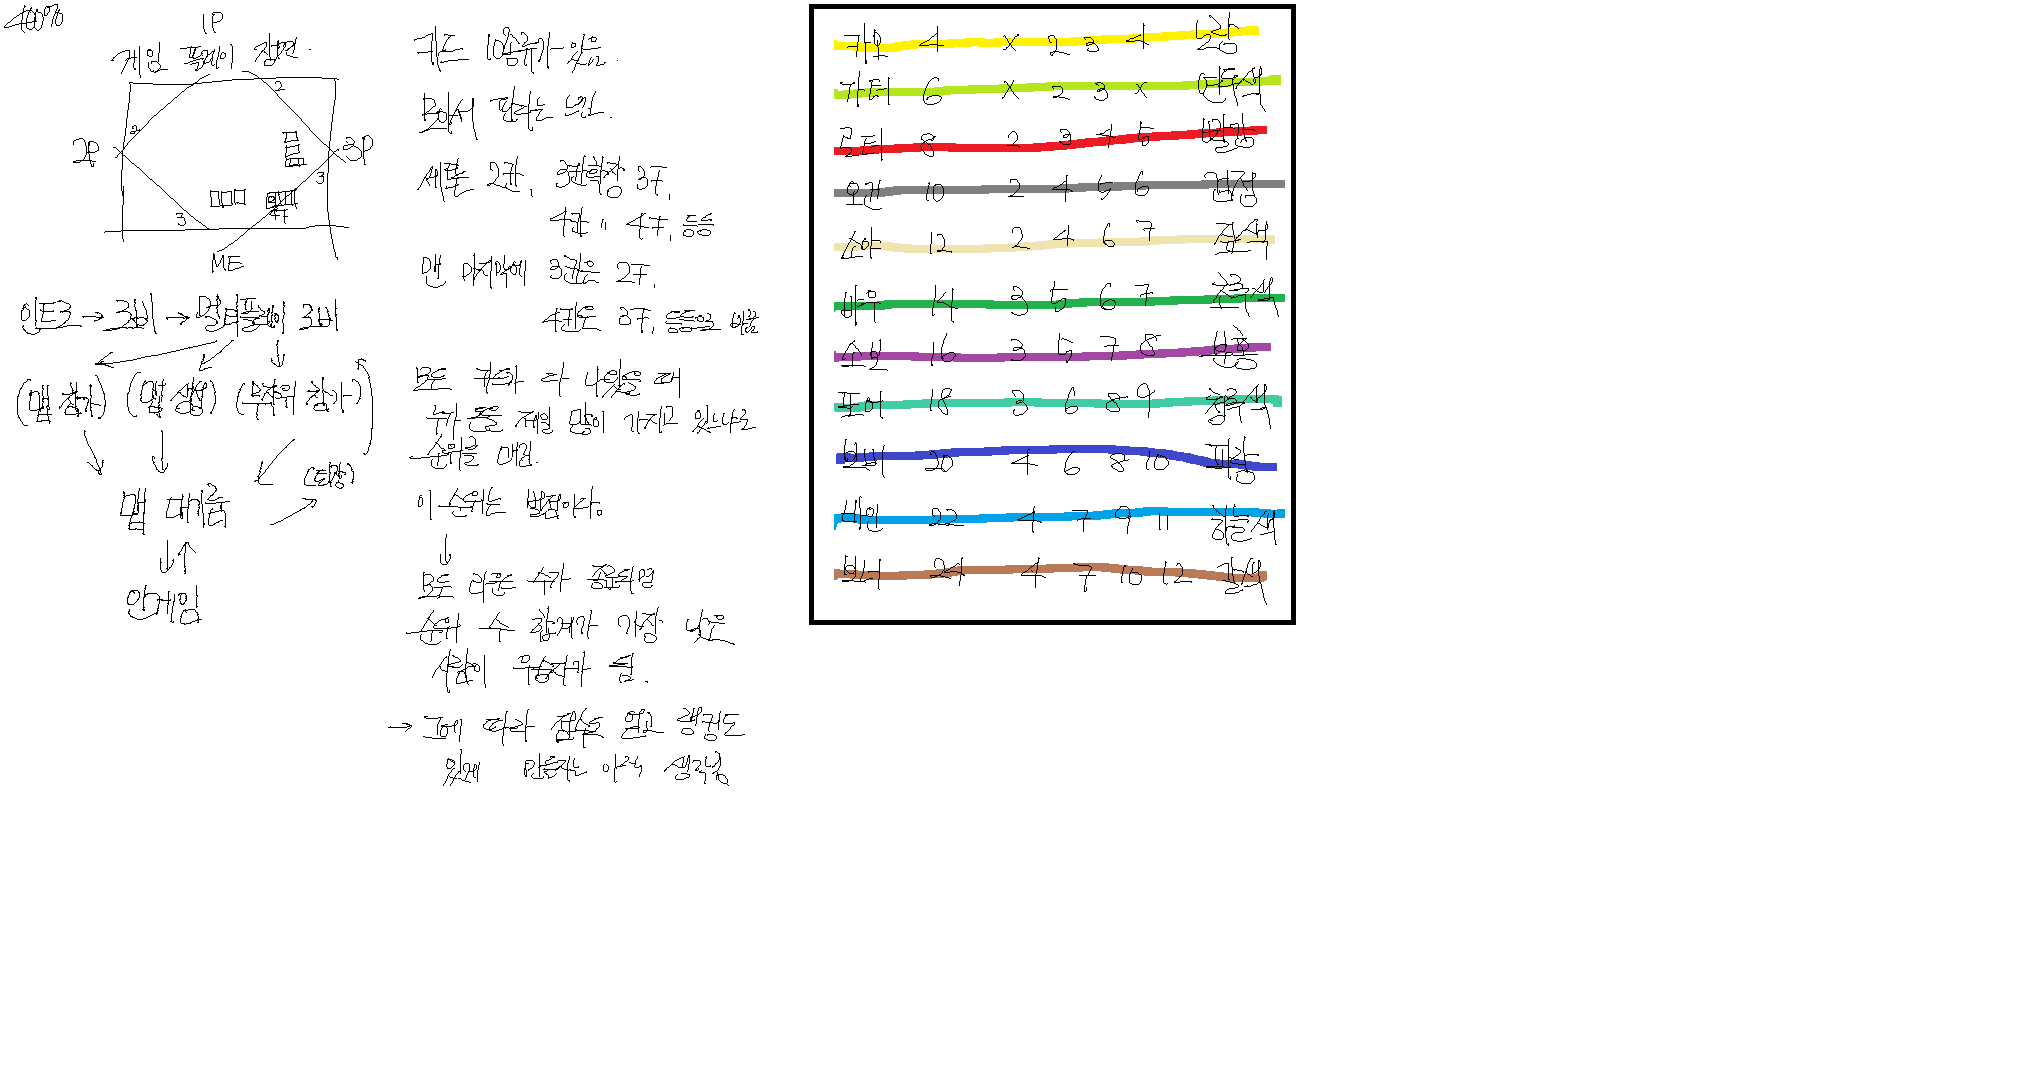 400%
1P
게임 플레이 장면.
2
2
2P
3P
3
3
ME
인트로 → 로비 → 멀티플레이 로비
(맵 참가) (맵 생성) (무작위 참가)
(퇴장)
맵 대기룸
인게임
카드 10종류가 있음.
모아서 판다는 느낌.
새로운 2칸, 3칸확장 3구,
4칸 " 4구, 등등
맨 마지막에 3칸은 2구,
4칸은 3구, 등등으로 바꿈
모든 카드가 다 나왔을 때
누가 돈을 제일 많이 가지고 있느냐로
순위를 매김.
이 순위는 벌점이다.
↓
모든 라운드 수가 종료되면
순위 수 합계가 가장 낮은
사람이 우승자가 됨.
→ 그에 따라 점수도 얻고 랭킹도
있게 만들자는 아직 생각님
카오 4 x 2 3 4 노랑
가터 6 x 2 3 x 연두색
로터 8 2 3 4 5 빨강
오칸 10 2 4 5 6 검정
소야 12 2 4 6 7 살색
바우 14 3 5 6 7 초록색
소빈 16 3 5 7 8 분홍
포어 18 3 6 8 9 청록색
브비 20 4 6 8 10 파랑
바인 22 4 7 9 11 하늘색
브너 24 4 7 10 12 갈색